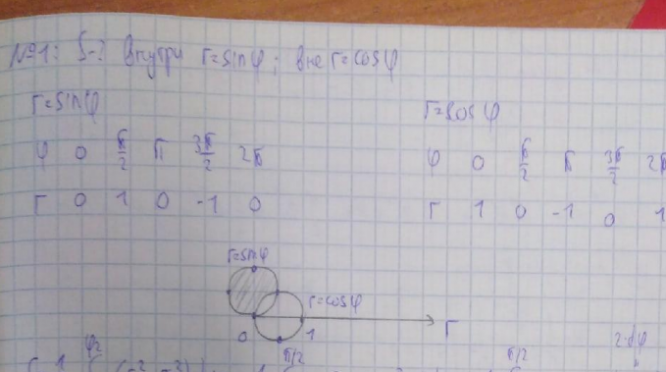 №1: S-? внутри r=sinφ; вне r=cosφ
r=sinφ
φ 0 π/2 π 3π/2 2π
r 0 1 0 -1 0
r=cosφ
φ 0 π/2 π 3π/2 2π
r 1 0 -1 0 1
r=sinφ
r=cosφ
0 1 r